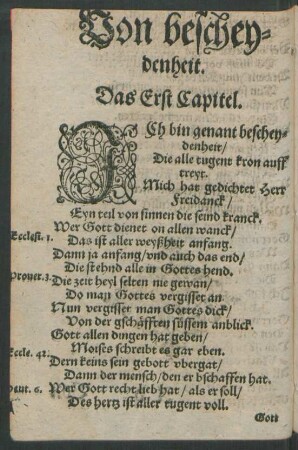 Von beschey-
denheit.
Das Erst Capitel.
ICh bin genant beschey-
denheit/
Die alle tugent kron auff
treyt.
Mich hat gedichtet Herr
Freidanck/
Eyn teil von sinnen die seind kranck.
Wer Gott dienet on allen wanck/
Ecclesi. 1.
Das ist aller weyßheit anfang.
Dann ja anfang/ vnd auch das end/
Die stehnd alle in Gottes hend.
Prouer. 3.
Die zeit heyl selten nie gewan/
Do man Gottes vergisset an
Nun vergisset man Gottes dick/
Von der gschäfften süssem anblick.
Gott allen dingen hat geben/
Eccle. 42.
Moises schreibt es gar eben.
Dern keins sein gebott vbergat/
Dann der mensch/ den er bschaffen hat.
Deut. 6.
Wer Gott recht lieb hat/ als er soll/
Des hertz ist aller tugent voll.
Gott